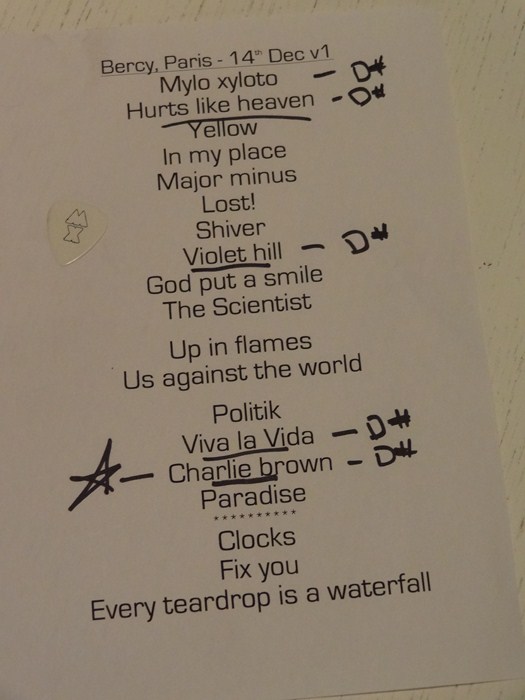 Bercy, Paris - 14th Dec v1
Mylo xyloto - D#
Hurts like heaven - D#
Yellow
In my place
Major minus
Lost!
Shiver
Violet hill - D#
God put a smile
The Scientist
Up in flames
Us against the world
Politik
Viva la Vida - D#
Charlie brown - D#
Paradise
**********
Clocks
Fix you
Every teardrop is a waterfall